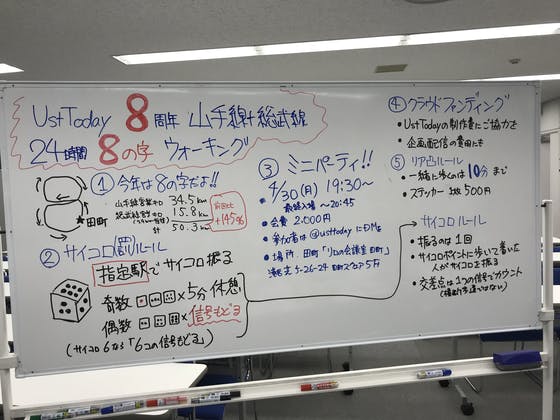 UstToday 8周年 山手線+総武線
24時間 8の字 ウォーキング
① 今年は8の字だよ!!
山手線営業キロ 34.5km
総武線営業キロ 15.8km
計 50.3km
前回比
+145%
★田町
② サイコロ(罰)ルール
指定駅でサイコロ振る
奇数 × 5分 休憩
偶数 × 信号もどる
(サイコロ6なら「6つの信号もどる」)
③ ミニパーティ!!
4/30(月) 19:30〜
最終入場 〜20:45
会費 2,000円
参加者は@usttodayにDMを
場所 田町「リロの会議室 田町」
港区芝5-26-24 田町スクエア5F
④ クラウドファンディング
UstTodayの制作費にご協力を
企画配信の費用にも
⑤ リア凸ルール
一緒に歩くのは10分まで
ステッカー 500円
サイコロルール
振るのは1回
サイコロポイントに歩いて着いた
人がサイコロを振る
交差点は1つの信号でカウント
(横断歩道ではない)